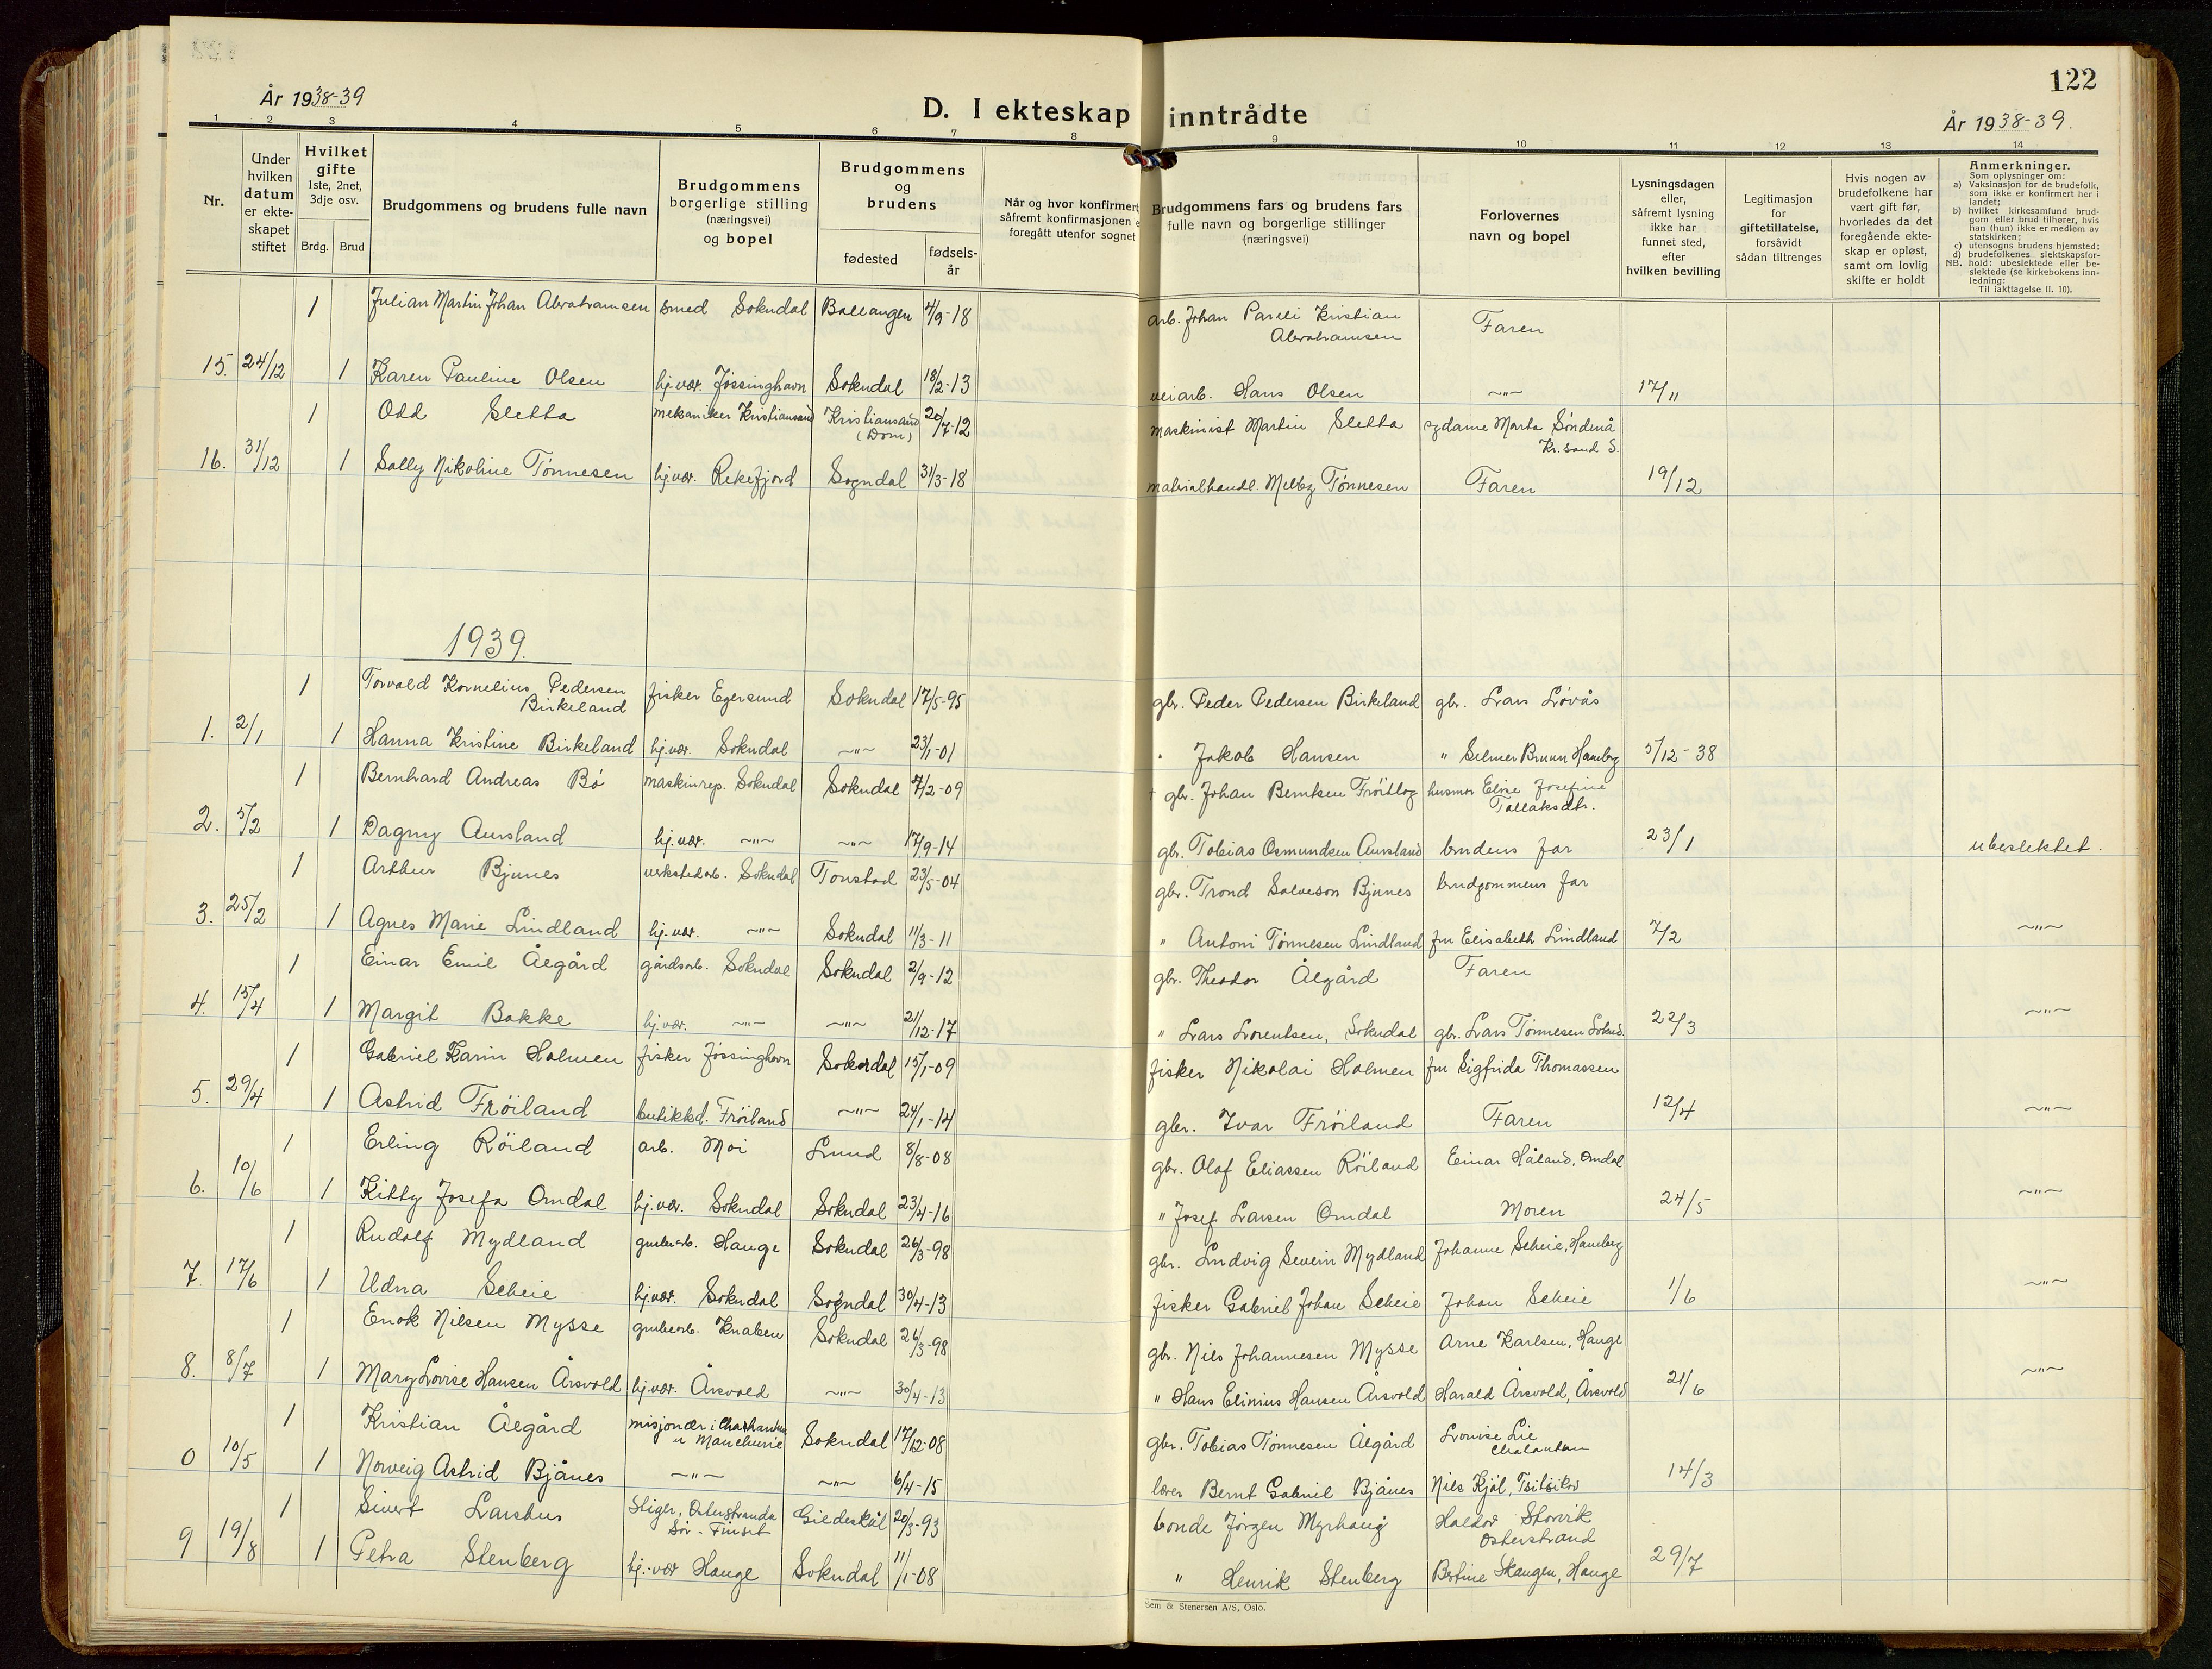 122
År 1938-39
D. I ekteskap inntrådte
År 1938-39.
1 2 3 4 5 6 7 8 9 10 11 12 13 14
Nr.
Under hvilken datum er ekteskapet stiftet
Hvilket gifte 1ste, 2net, 3dje osv.
Brdg. Brud
Brudgommens og brudens fulle navn
Brudgommens borgerlige stilling (næringsvei) og bopel
Brudgommens og brudens
fødested
fødselsår
Når og hvor konfirmert
såfremt konfirmasjonen e
foregått utenfor sognet
Brudgommens fars og brudens fars
fulle navn og borgerlige stillinger
(næringsvei)
Forlovernes
navn og bopel
Lysningsdagen eller, såfremt lysning ikke har funnet sted, efter hvilken bevilling
Legitimasjon for giftetillatelse, forsåvidt sådan tiltrenges
Hvis nogen av brudefolkene har vært gift før, hvorledes da det foregående ekteskap er opløst, samt om lovlig skifte er holdt
Anmerkninger.
Som oplysninger om:
a) Vaksinasjon for de brudefolk, som ikke er konfirmert her i landet;
b) hvilket kirkesamfund brudgom eller brud tilhører, hvis han (hun) ikke er medlem av statskirken;
c) utensogns brudens hjemsted;
d) brudefolkenes slektskapsforhold: ubeslektede eller beslektede (se kirkebokens innledning:
NB.
Til iakttagelse II. 10).
1 Julian Martin Johan Abrahamsen smed Sokndal Ballangen 4/9-18 arb. Johan Pareli Kristian Abrahamsen Faren
15. 24/12 1 Karen Pauline Olsen hj.vær. Jøssinghavn Sokndal 18/2-13 veiarb. Hans Olsen ~"~ 17/11
1 Odd Sletta mekaniker Kristiansand Kristiansand (Dom) 20/7-12 maskinist Martin Sletta sydame Marta Søndenå Kr.sand S.
16. 31/12 1 Solly Nikoline Tønnesen hj.vær. Rekefjord Sogndal 31/3-18 materialhandl. Meltzg Tønnesen Faren 19/12
1939.
1 Torvald Kornelius Pedersen Birkeland fisker Egersund Sokndal 17/5-95 gbr. Peder Pedersen Birkeland gbr. Lars Løvås
1. 2/1 1 Hanna Kristine Birkeland hj.vær. Sokndal ~"~ 23/1-01 " Jakob Hansen " Selmer Brunn Hamberg 5/12-38
1 Bernhard Andreas Bö maskinrep. Sokndal Sokndal 7/2-09 † gbr. Johan Berntsen Fröitlog husmor Elise Josefine Tollaksdtr.
2. 5/2 1 Dagny Aursland hj.vær. ~"~ ~"~ 17/9-14 gbr. Tobias Osmundsen Aursland brudens far 23/1 ubeslektet.
1 Arthur Bjunes verkstedarb. Sokndal Tonstad 23/5-04 gbr. Trond Salveson Bjunes brudgommens far
3. 25/2 1 Agnes Marie Lindland hj.vær. ~"~ Sokndal 11/3-11 " Antoni Tønnesen Lindland fru Elisabeth Lindland 7/2 ~"~
1 Einar Emil Ålgård gårdsarb. Sokndal Sokndal 2/9-12 gbr. Theodor Ålgård Faren
4. 15/4 1 Margit Bakke hj.vær. ~"~ ~"~ 21/12-17 " Lars Lorentsen, Sokndal gbr. Lars Tønnesen Soknd. 22/3 ~"~
1 Gabriel Karin Holmen fisker Jøssinghavn Sokndal 15/1-09 fisker Nikolai Holmen fru Sigfrida Thomassen
5. 29/4 1 Astrid Fröiland butikkd. Fröiland ~"~ 24/1-14 gbr. Ivar Fröiland Faren 12/4 ~"~
1 Erling Röiland arb. Moi Lund 8/8-08 gbr. Olaf Eliassen Röiland Einar Håland, Omdal
6. 10/6 1 Kitty Josefa Omdal hj.vær. Sokndal Sokndal 23/4-16 " Josef Larsen Omdal Moren 24/5 ~"~
1 Rudolf Mydland grubearb. Hauge Sokndal 26/3-98 gbr. Ludvig Severin Mydland Johanne Scheie, Hamberg
7. 17/6 1 Udna Scheie hj.vær. Sokndal Sogndal 30/4-13 fisker Gabriel Johan Scheie Johan Scheie 1/6 ~"~
1 Enok Nilsen Mysse grubearb. Knaben Sokndal 26/3-98 gbr. Nils Johannesen Mysse Arne Karlsen, Hauge
8. 8/7 1 Mary Lovise Hansen Årsvold hj.vær. Årsvold ~"~ 30/4-13 " Hans Elinius Hansen Årsvold Harald Årsvold, Årsvold 21/6 ~"~
1 Kristian Ålgård misjonær i Manchurie Sokndal 17/12-08 gbr. Tobias Tønnesen Ålgård Lovise Lie Chalantun
0 10/5 1 Norveig Astrid Bjånes ~"~ ~"~ 6/4-15 lærer Bernt Gabriel Bjånes Nils Kjøl, Tsitsikar 14/3
1 Sivert Larshus Stiger, Osterstranda Sör-Finset Gildeskål 20/3-93 bonde Jørgen Myrhaug Haldor Storvik Osterstrand
9 19/8 1 Petra Stenberg hj.-vær Hauge Sokndal 11/1-08 " Henrik Stenberg Bertine Skaugen, Hauge 29/7
Sem & Stenersen A/S, Oslo.